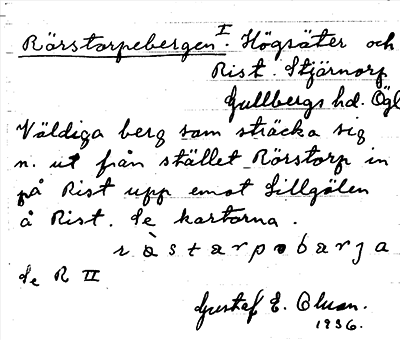 Rörstorpebergen I. Högsäter och
Rist. Stjärnorp
Gullbergs hd. Ögl
Väldiga berg som sträcka sig
n. ut från stället Rörstorp in
på Rist upp emot Lillgölen
å Rist. Se kartorna.
ràstarpobarja
Se R II
Gustaf E. Olson.
1936.